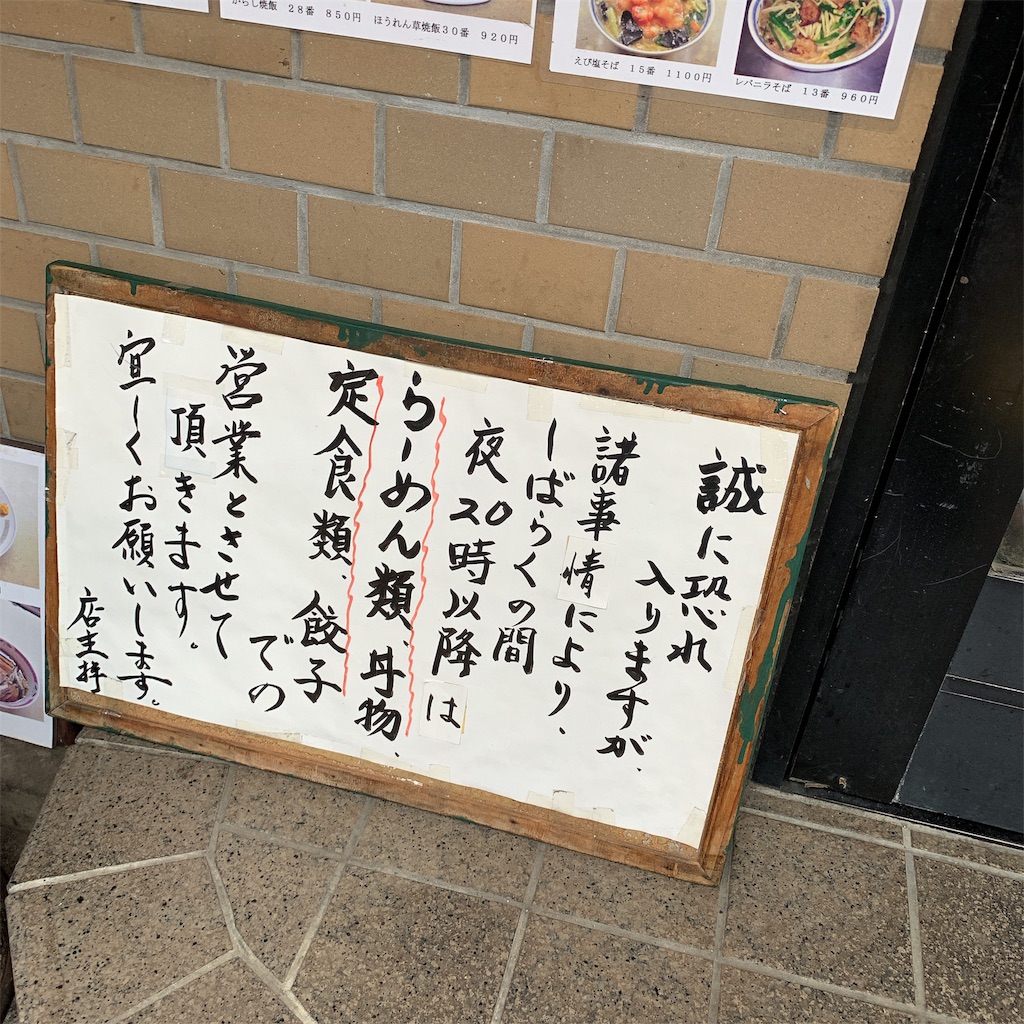 からし焼飯 28番 850円
ほうれん草焼飯30番 920円
えび塩そば 15番 1100円
レバニラそば 13番 960円
誠に恐れ
入りますが、
諸事情により、
しばらくの間
夜20時以降は
らーめん類、丼物、
定食類、餃子
での
営業とさせて
頂きます。
宜しくお願いします。
店主拝